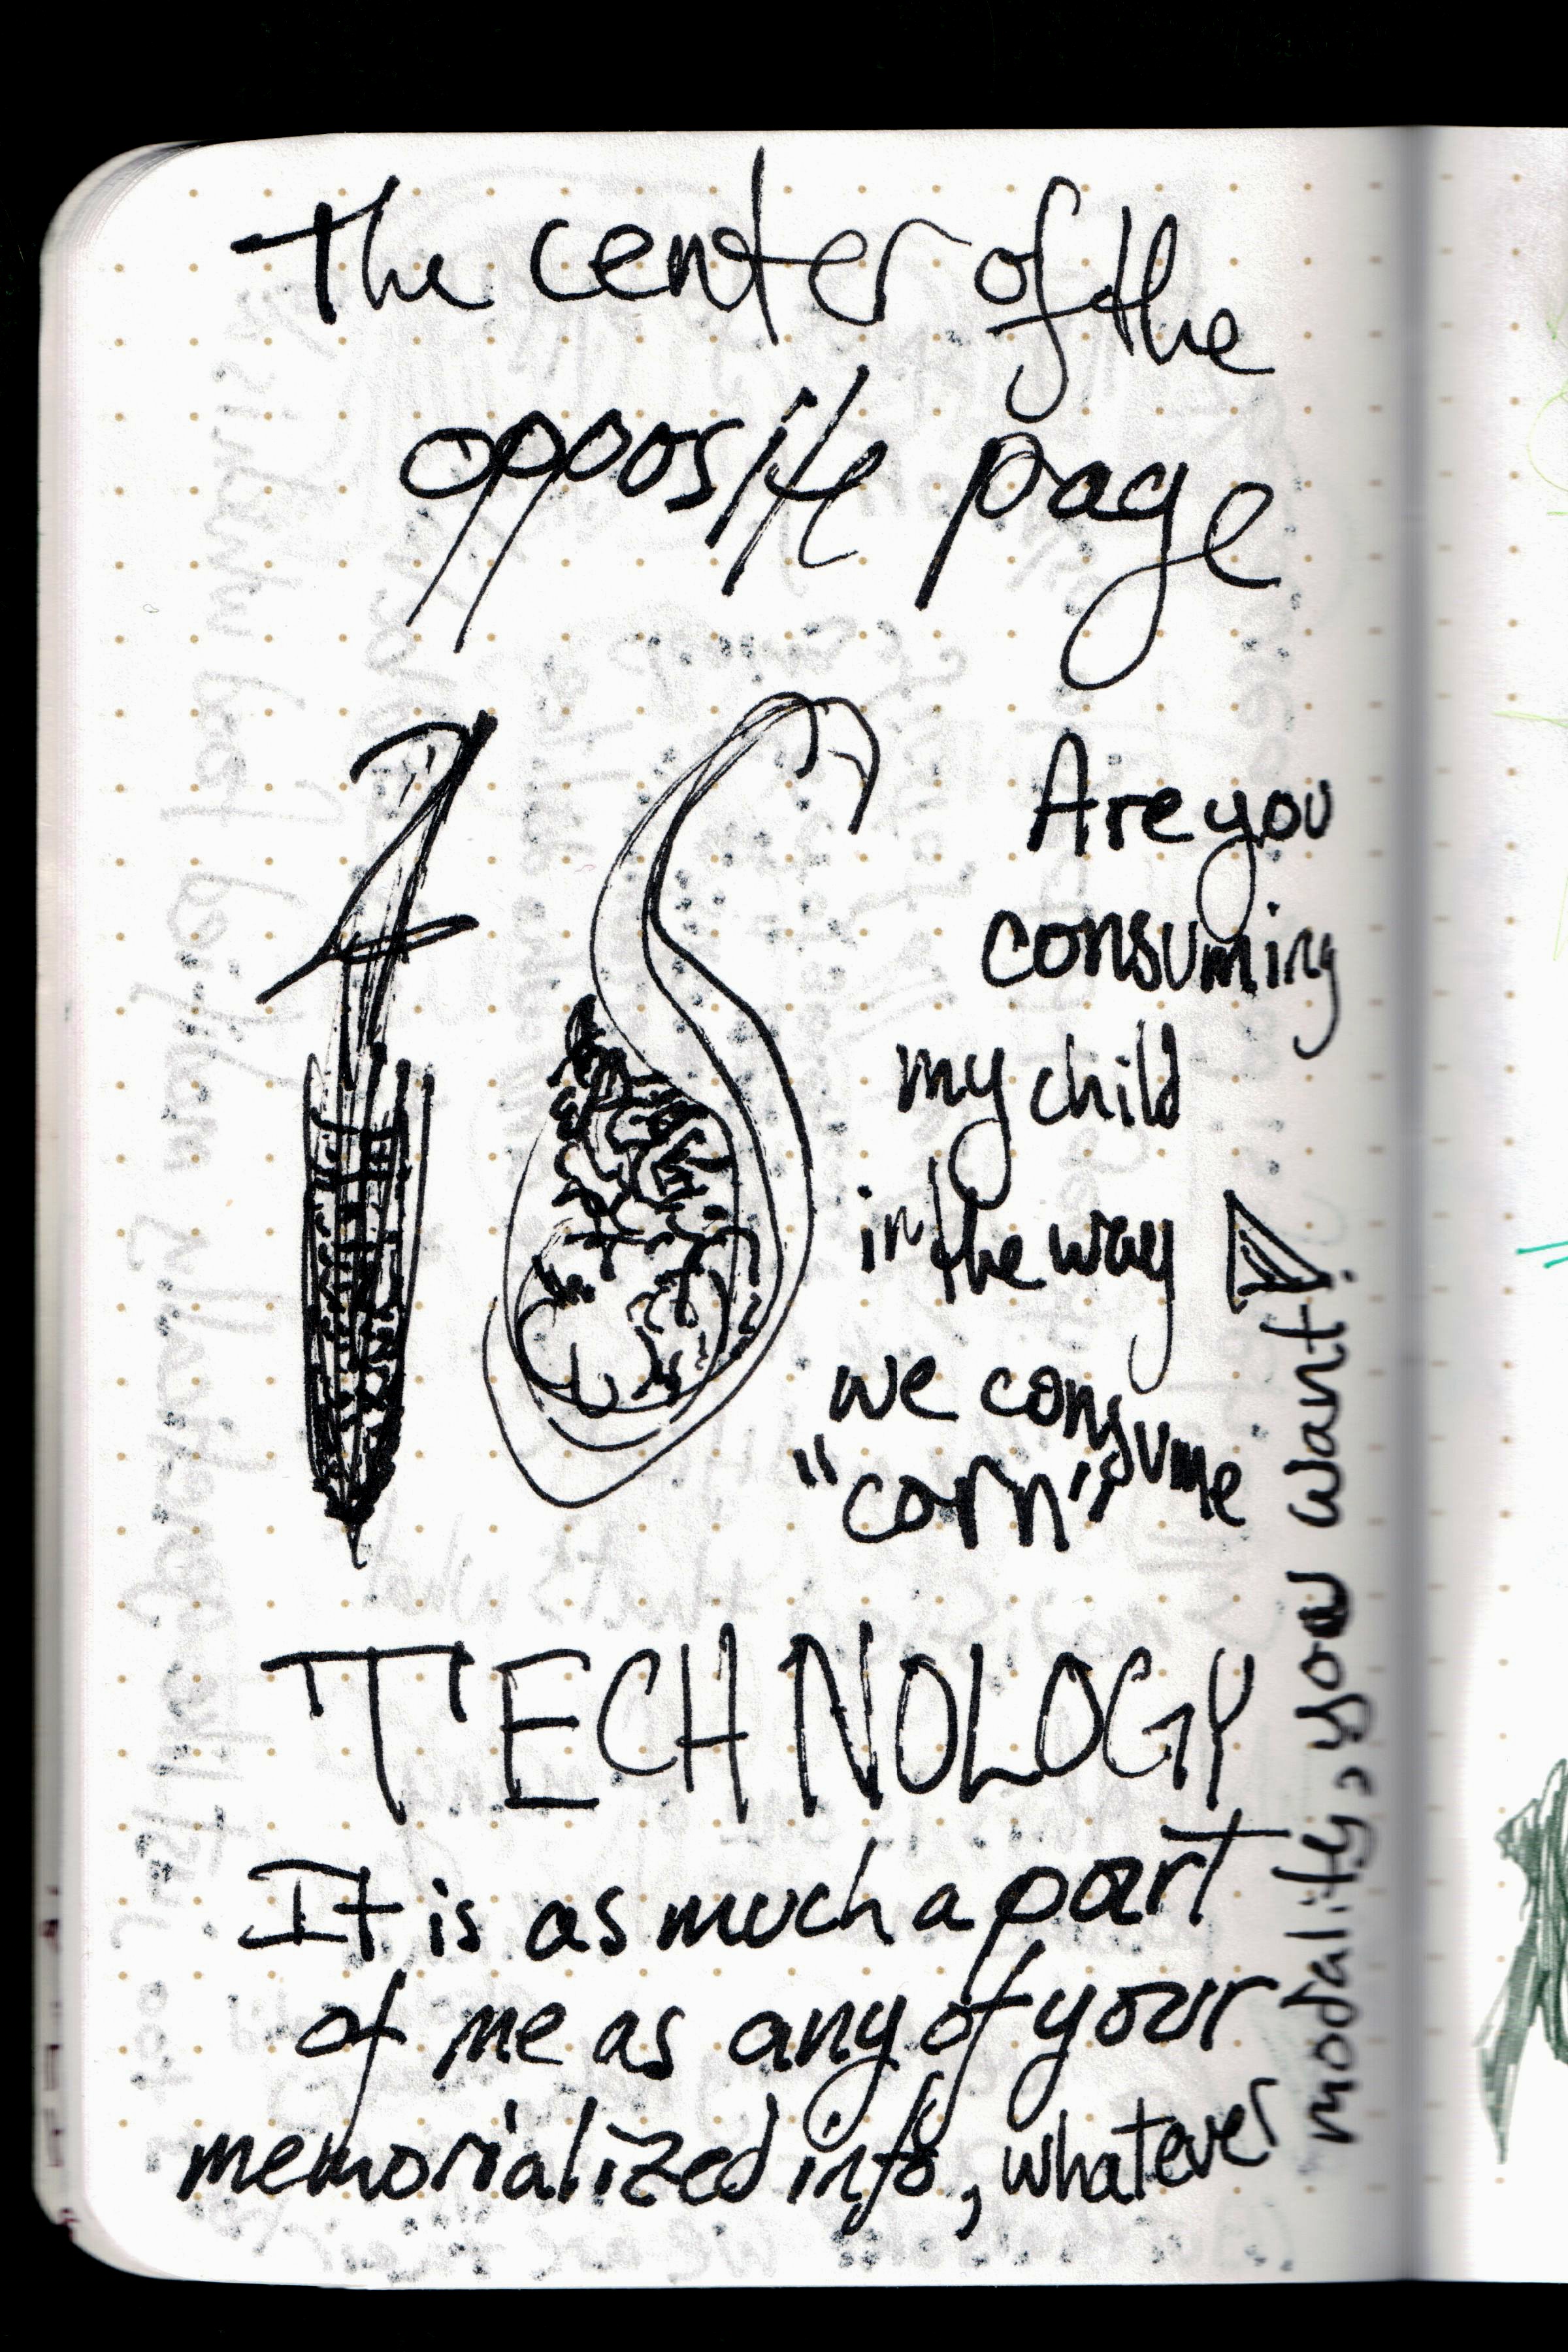 The center of the
opposite page
Are you
consuming
my child
in the way
we consume
"corn",
TECHNOLOGY
It is as much a part
of me as any of your
memorialized info, whatever
modality, you want.